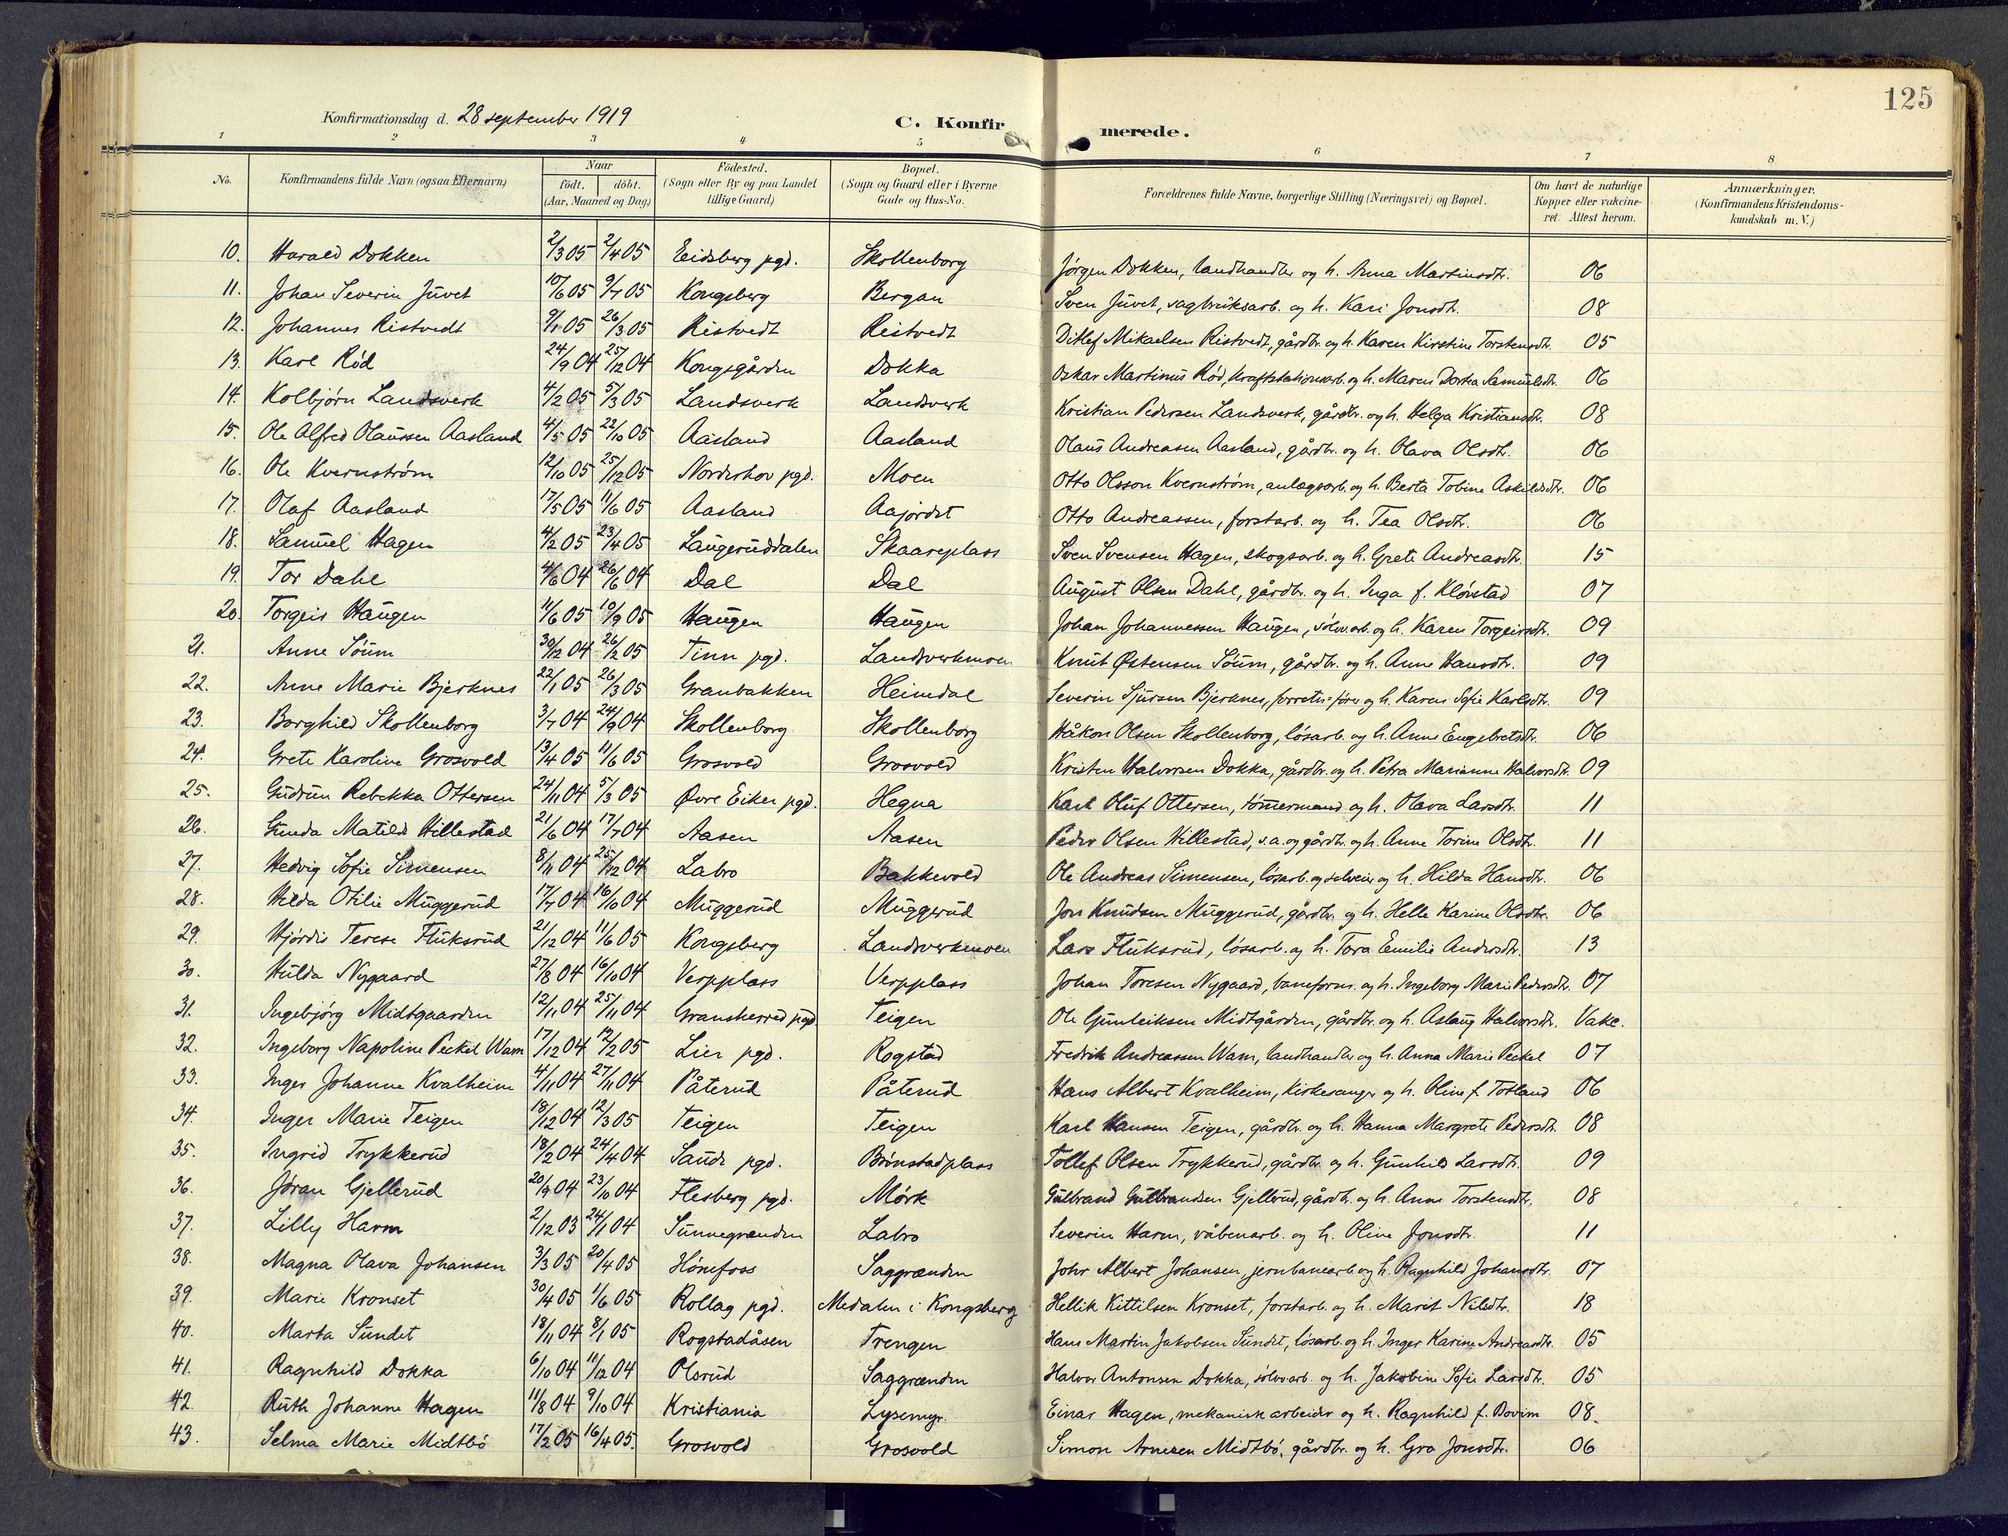 125
Konfirmationsdag d. 28 september 1919 C. Konfir merede.
1 2 3 4 5 6 7 8
No. Konfirmandens fulde Navn (ogsaa Efternavn) Naar födt. döbt. (Aar, Maaned og Dag) Födested. (Sogn eller By og paa Landet tillige Gaard) Bopæl. (Sogn og Gaard eller i Byerne Gade og Hus-No. Forældrenes fulde Navne, borgerlige Stilling (Næringsvei) og Bopæl. Om havt de naturlige Kopper eller vakcineret. Attest herom. Anmærkninger. (Konfirmandens Kristendomskundskab m. V.)
10. Harald Dokken 2/3 05 2/4 05 Eidsberg pgd. Skollenborg Jørgen Dokken, landhandler og h. Anna Martinsdtr. 06
11. Johan Severin Juvet 10/6 05 9/7 05 Kongsberg Bergan Sven Juvet, sagbruksarb. og h. Kari Jonsdtr. 08
12. Johannes Ristvedt 9/1 05 26/3 05 Ristvedt Ristvedt Ditlef Mikaelsen Ristvedt, gårdbr. og h. Karen Kirstine Torstensdtr. 05
13. Karl Rød 24/9 04 25/12 04 Kongsgården Dokka Oskar Martinus Rød, kraftstationsarb. og h. Maren Dortea Samuelsdtr. 06
14. Kolbjørn Landsverk 4/2 05 5/3 05 Landsverk Landsverk Kristian Pedersen Landsverk, gårdbr. og h. Helga Kristiansdtr. 08
15. Ole Alfred Olaussen Aasland 4/5 05 22/10 05 Aasland Aasland Olaus Andreasen Aasland, gårdbr. og h. Olava Olsdtr. 06
16. Ole Kvernstrøm 12/10 05 25/12 05 Norderhov pgd. Moen Otto Olsson Kvernstrøm, anlægsarb. og h. Berta Tobine Askildsdtr. 06
17. Olaf Aasland 17/5 05 11/6 05 Aasland Aajordet Otto Andreassen, forstarb. og h. Tea Olsdtr. 06
18. Samuel Hagen 4/2 05 23/4 05 Laugeruddalen Skaareplass Sven Svensen Hagen, skogsarb. og h. Grete Andreasdtr. 15
19. Tor Dahl 4/6 04 26/6 04 Dal Dal August Olsen Dahl, gårdbr. og h. Inga f. Kløvstad 07
20. Torgeir Haugen 11/6 05 10/9 05 Haugen Haugen Johan Johannessen Haugen, sølvarb. og h. Karen Torgeirsdtr. 09
21. Anne Söum 30/12 04 26/2 05 Tinn pgd. Landsverkmoen Knut Østensen Søum, gårdbr. og h. Anne Hansdtr. 09
22. Anne Marie Bjerknes 22/1 05 26/3 05 Granbakken Heimdal Severin Sjursen Bjerknes, forretn.fører og h. Karen Sofie Karlsdtr. 09
23. Borghild Skollenborg 3/7 04 24/9 04 Skollenborg Skollenborg Håkon Olsen Skollenborg, løsarb. og h. Anne Engebretsdtr. 06
24. Grete Karoline Grosvold 13/4 05 11/6 05 Grosvold Grosvold Kristen Halvorsen Dokka, gårdbr. og h. Petra Marianne Halvorsdtr. 09
25. Gudrun Rebekka Ottersen 24/11 04 5/3 05 Øvre Eiker pgd. Hegna Karl Oluf Ottersen, tømermand og h. Olava Larsdtr. 11
26. Gunda Matilde Hillestad 21/6 04 17/7 04 Aasen Aasen Peder Olsen Hillestad, s.a. og gårdbr. og h. Anne Torine Olsdtr. 11
27. Hedvig Sofie Simensen 8/11 04 25/12 04 Labro Bakkevold Ole Andreas Simensen, løsarb. og selveier og h. Hilda Hansdtr. 06
28. Hilda Otilie Muggerud 17/7 04 16/10 04 Muggerud Muggerud Jon Knudsen Muggerud, gårdbr. og h. Helle Karine Olsdtr. 06
29. Hjørdis Terese Fluksrud 21/12 04 11/6 05 Kongsberg Landsverkmoen Lars Fluksrud, løsarb. og h. Tora Emilie Andersdtr. 13
30. Hulda Nygaard 27/8 04 16/10 04 Verpplass Verpplass Johan Toresen Nygaard, baneform. og h. Ingeborg Marie Pedersdtr. 07
31. Ingebjørg Midtgaarden 12/11 04 25/11 04 Gransherred pgd. Teigen Ole Gunleiksen Midtgården, gårdbr. og h. Aslaug Halvorsdtr. Vakc.
32. Ingeborg Napoline Peckel Wam 17/12 04 12/2 05 Lier pgd. Rogstad Fredrik Andreassen Wam, landhandler og h. Anna Marie Peckel 07
33. Inger Johanne Kvalheim 4/11 04 27/11 04 Påterud Påterud Hans Albert Kvalheim, kirkesanger og h. Oline f. Totland 06
34. Inger Marie Teigen 18/12 04 12/3 05 Teigen Teigen Karl Hansen Teigen, gårdbr. og h. Hanna Margrete Pedersdtr. 08
35. Ingrid Trykkerud 18/2 04 24/4 04 Saude pgd. Brønstadplass Tollef Olsen Trykkerud, gårdbr. og h. Gunhild Larsdtr. 09
36. Jøran Gjellerud 20/9 04 23/10 04 Flesberg pgd. Mørk Gulbrand Gulbrandsen Gjellerud, gårdbr. og h. Anne Torstensdtr. 08
37. Lilly Harm 2/12 03 24/1 04 Sunnegrænden Labro Severin Harm, våbenarb. og h. Oline Jonsdtr. 11
38. Magna Olava Johansen 3/3 05 20/4 05 Hønefoss Saggrænden Johs Albert Johansen, jernbanearb. og h. Ragnhild Johansdtr. 07
39. Marie Kronset 30/4 05 1/6 05 Rollag pgd. Medalen i Kongsberg Hellik Kittilsen Kronset, forstarb. og h. Marit Nilsdtr. 18
40. Marta Sundet 18/11 04 8/1 05 Rogstadåsen Trengen Hans Martin Jakobsen Sundet, løsarb. og h. Inger Karine Andreasdtr. 05
41. Ragnhild Dokka 6/10 04 11/12 04 Olsrud Saggrænden Halvor Antonsen Dokka, sølvarb. og h. Jakobine Sofie Larsdtr. 05
42. Ruth Johanne Hagen 11/8 04 9/10 04 Kristiania Lysemyr. Einar Hagen, mekanisk arbeider og h. Ragnhild f. Bovim 08.
43. Selma Marie Midtbö 17/2 05 16/4 05. Grosvold Grosvold Simon Arnesen Midtbö, gårdbr. og h. Gro Jonsdtr. 06